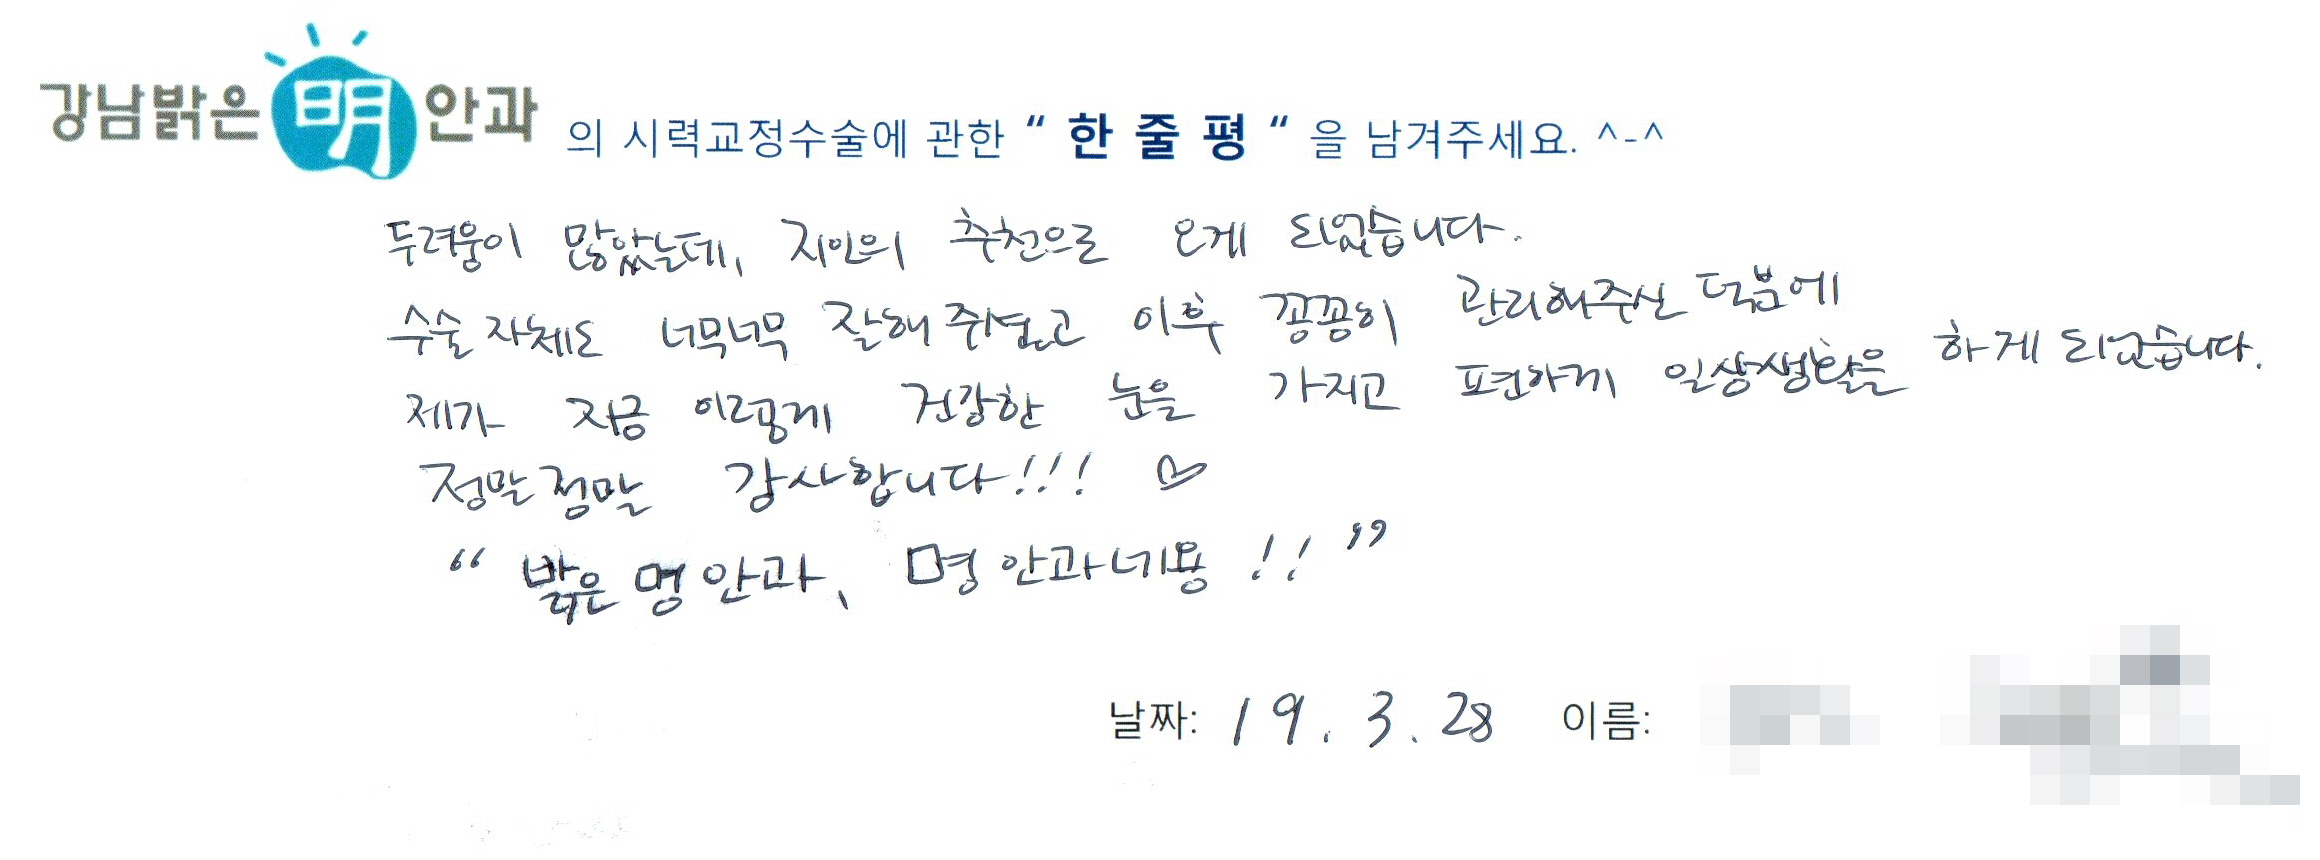 강남밝은明안과 의 시력교정수술에 관한 “ 한 줄 평 “ 을 남겨주세요. ^-^
두려움이 많았는데, 지인의 추천으로 오게 되었습니다.
수술 자체도 너무너무 잘해 주셨고 이후 꼼꼼히 관리해주신 덕분에
제가 지금 이렇게 건강한 눈을 가지고 편하게 일상생활을 하게 되었습니다.
정말정말 감사합니다!!! ♡
“ 밝은 명 안과, 명 안과네용 !! ”
날짜: 19. 3. 28 이름: